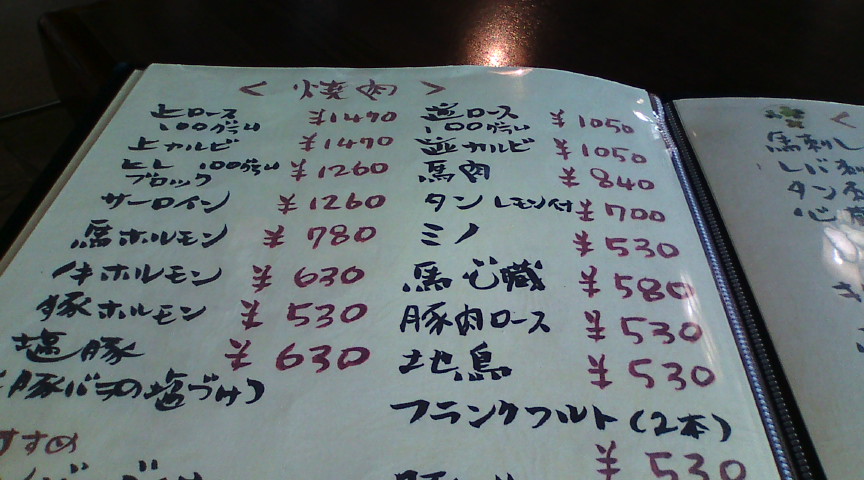 < 焼肉 >
上ロース
100グラム ¥1470
上カルビ ¥1470
ヒレ 100グラム
ブロック ¥1260
サーロイン ¥1260
馬ホルモン ¥780
牛ホルモン ¥630
豚ホルモン ¥530
塩豚 ¥630
(豚バラの塩づけ)
すすめ
並ロース
100グラム ¥1050
並カルビ ¥1050
馬肉 ¥840
タン レモン付 ¥700
ミノ ¥530
馬心臓 ¥580
豚肉ロース ¥530
地鳥 ¥530
フランクフルト(2本)
¥530
<
馬刺し
レバ刺
タン刺
心臓